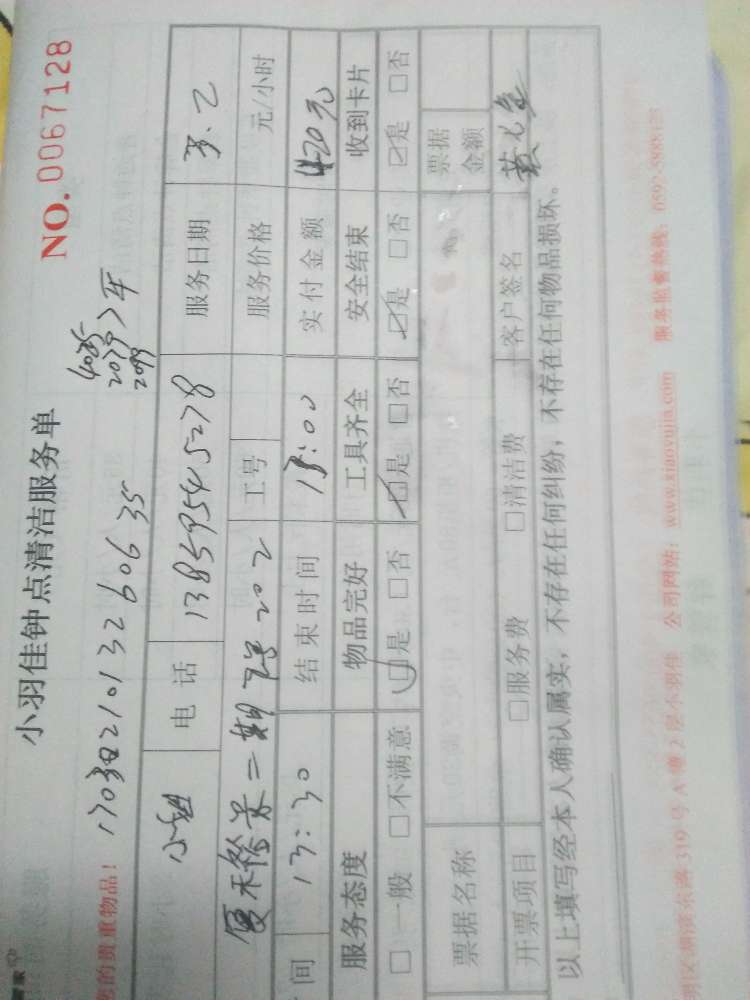 小羽佳钟点清洁服务单
NO. 0067128
您的贵重物品！
4025
2019
2099
电 话 13859545278 服务日期 3.2
二期 7号 202 工号 服务价格 元/小时
间 13:30 结束时间 18:00 实付金额 420元
服务态度 物品完好 工具齐全 安全结束 收到卡片
□ 一般 □ 不满意 □是 □否 □是 □否 □是 □否 □是 □否
票据名称 票据金额
开票项目 □服务费 □清洁费 客户签名
以上填写经本人确认属实，不存在任何纠纷，不存在任何物品损坏。
319号A幢2层小羽佳 公司网站：www.xiaoyujia.com 服务监督热线：